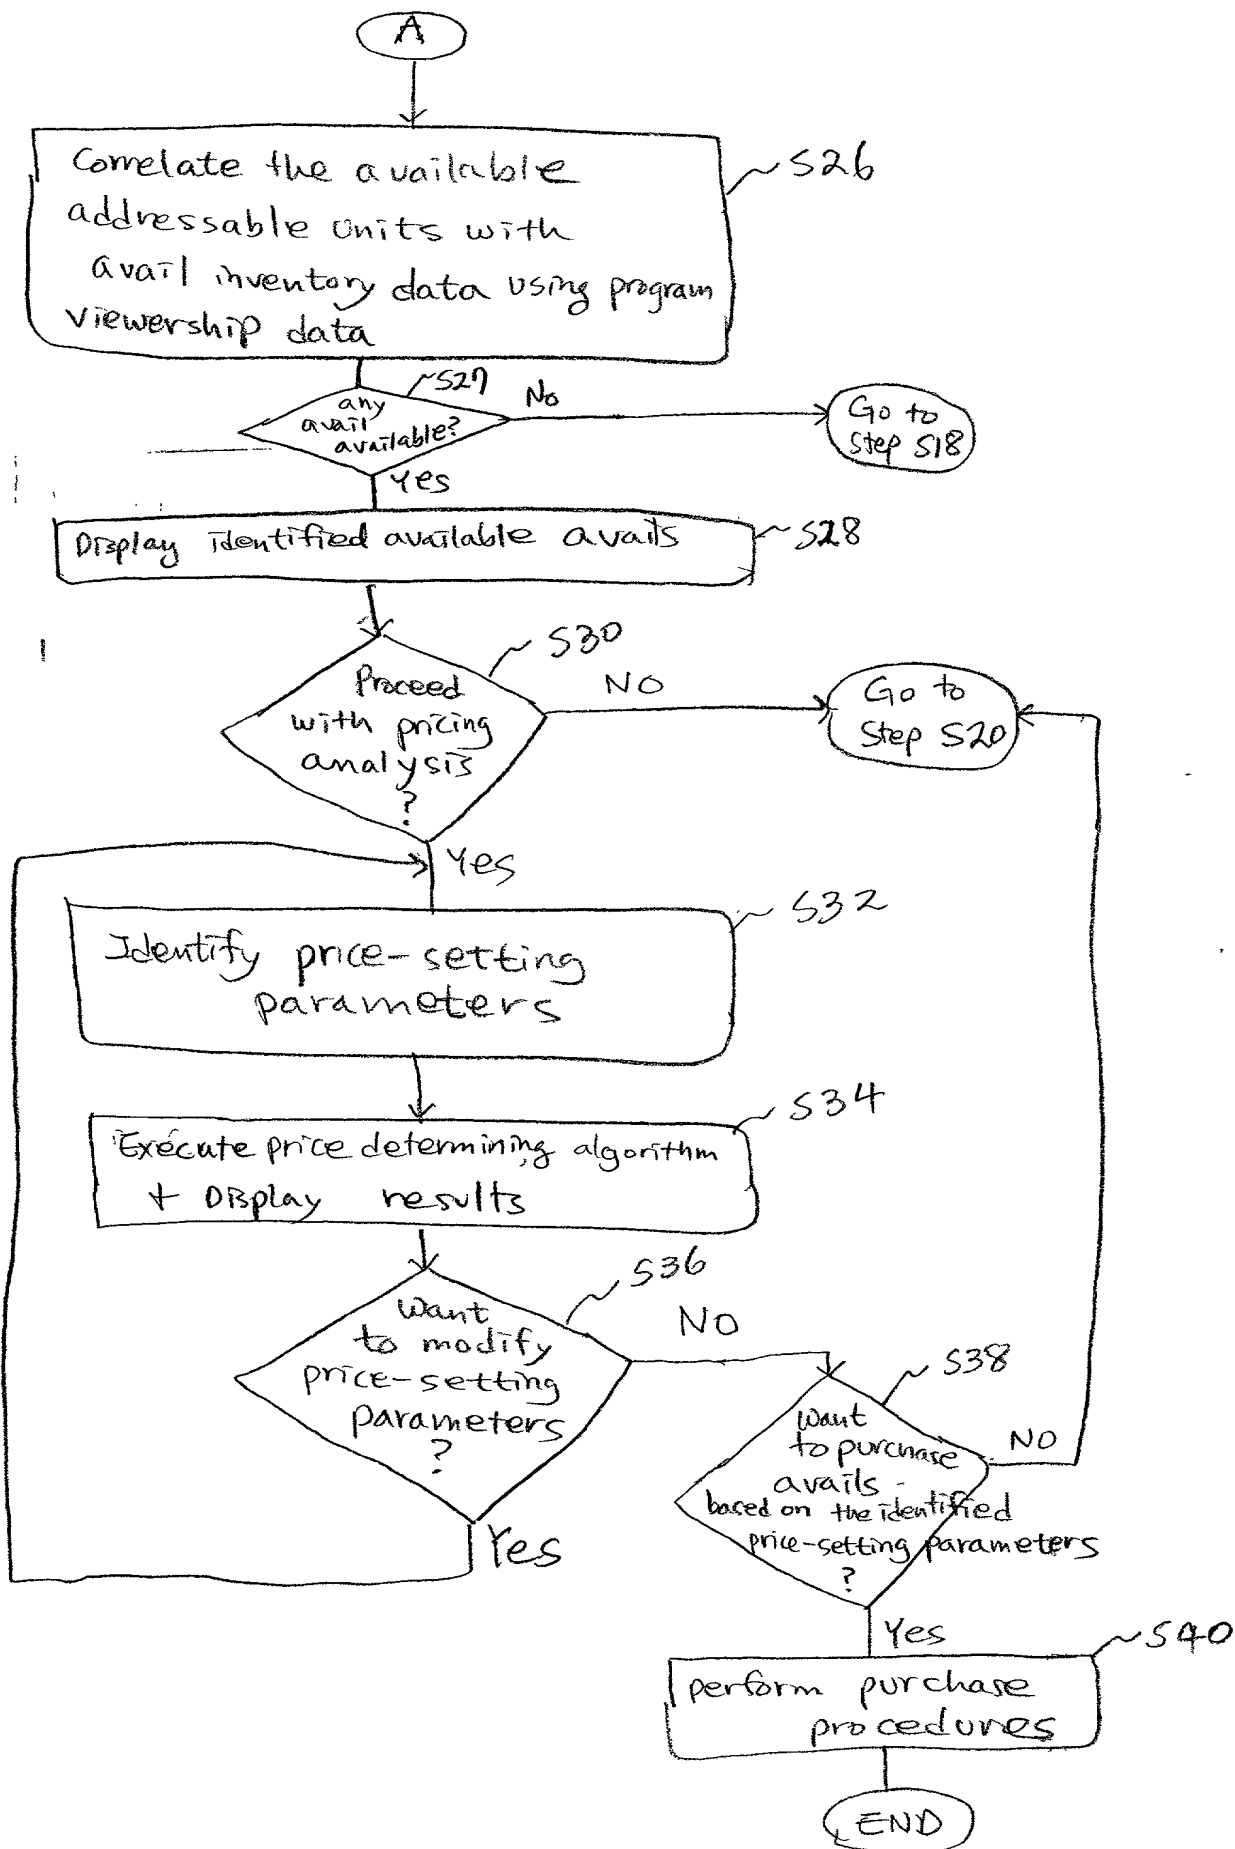 A
Correlate the available
addressable units with
avail inventory data using program
viewership data
S26
any
avail
available?
S27
No
Go to
Step S18
Yes
Display identified available avails
S28
Proceed
with pricing
analysis
?
S30
NO
Go to
Step S20
Yes
Identify price-setting
parameters
S32
Execute price determining algorithm
+ Display results
S34
Want
to modify
price-setting
parameters
?
S36
NO
Want
to purchase
avails
based on the identified
price-setting parameters
?
S38
NO
Yes
Yes
perform purchase
procedures
S40
END